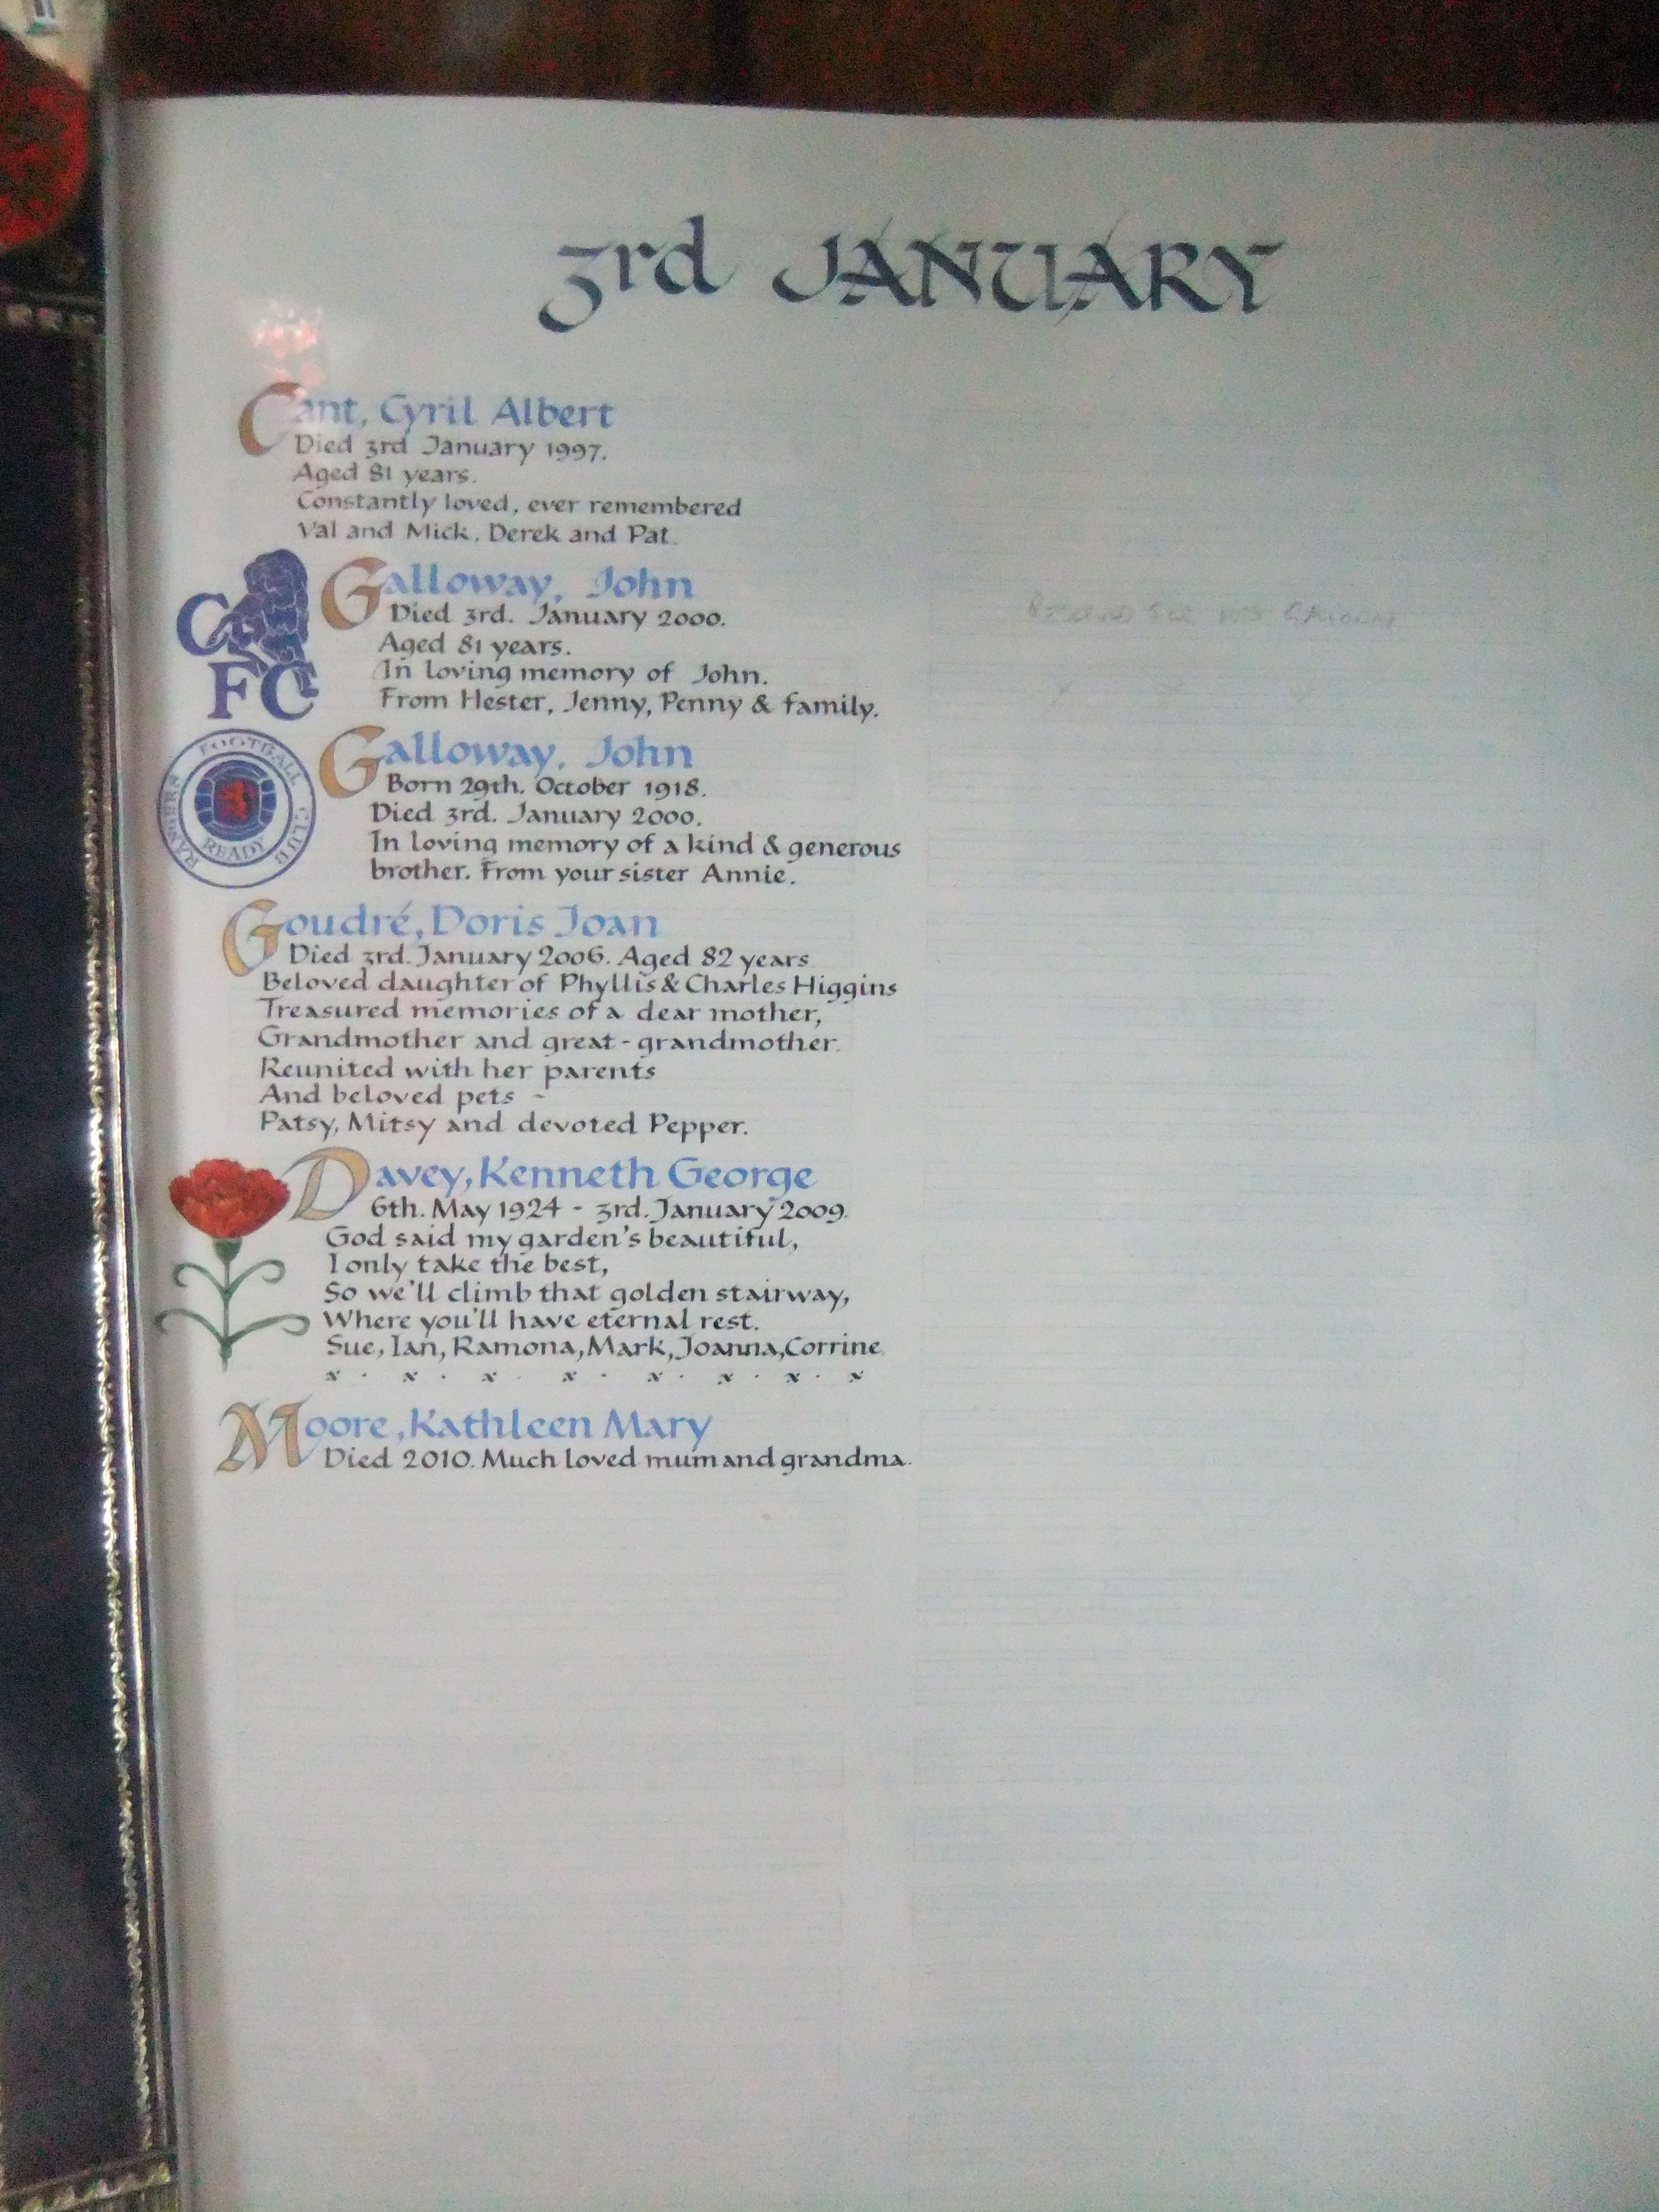 3rd JANUARY
Cant, Cyril Albert
Died 3rd January 1997.
Aged 81 years.
Constantly loved, ever remembered
Val and Mick, Derek and Pat.
C FC
Galloway, John
Died 3rd. January 2000.
Aged 81 years.
In loving memory of John.
From Hester, Jenny, Penny & family.
RANGERS FOOTBALL CLUB
READY
Galloway, John
Born 29th. October 1918.
Died 3rd. January 2000.
In loving memory of a kind & generous
brother. From your sister Annie.
Goudré, Doris Joan
Died 3rd. January 2006. Aged 82 years.
Beloved daughter of Phyllis & Charles Higgins
Treasured memories of a dear mother,
Grandmother and great-grandmother.
Reunited with her parents
And beloved pets -
Patsy, Mitsy and devoted Pepper.
Davey, Kenneth George
6th. May 1924 - 3rd. January 2009.
God said my garden's beautiful,
I only take the best,
So we'll climb that golden stairway,
Where you'll have eternal rest.
Sue, Ian, Ramona, Mark, Joanna, Corrine.
x . x . x . x . x . x . x . x
Moore, Kathleen Mary
Died 2010. Much loved mum and grandma.